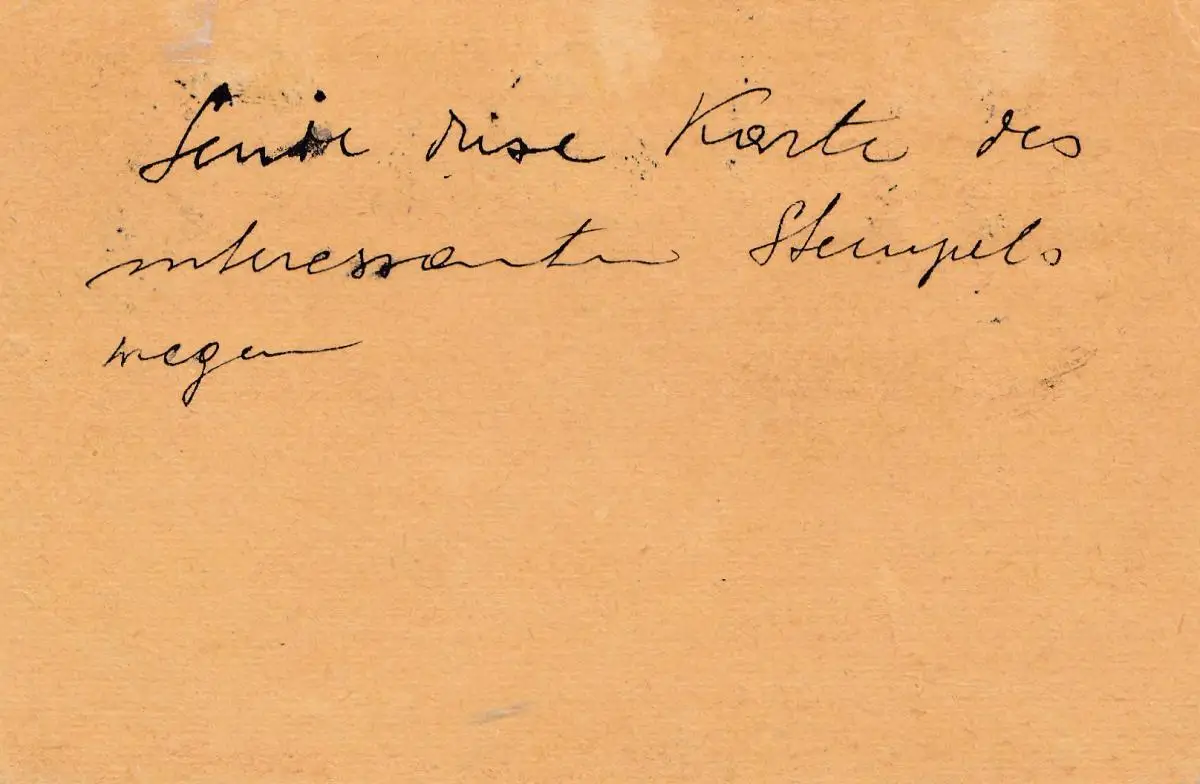 Sende diese Karte des
interessanten Stempels
wegen